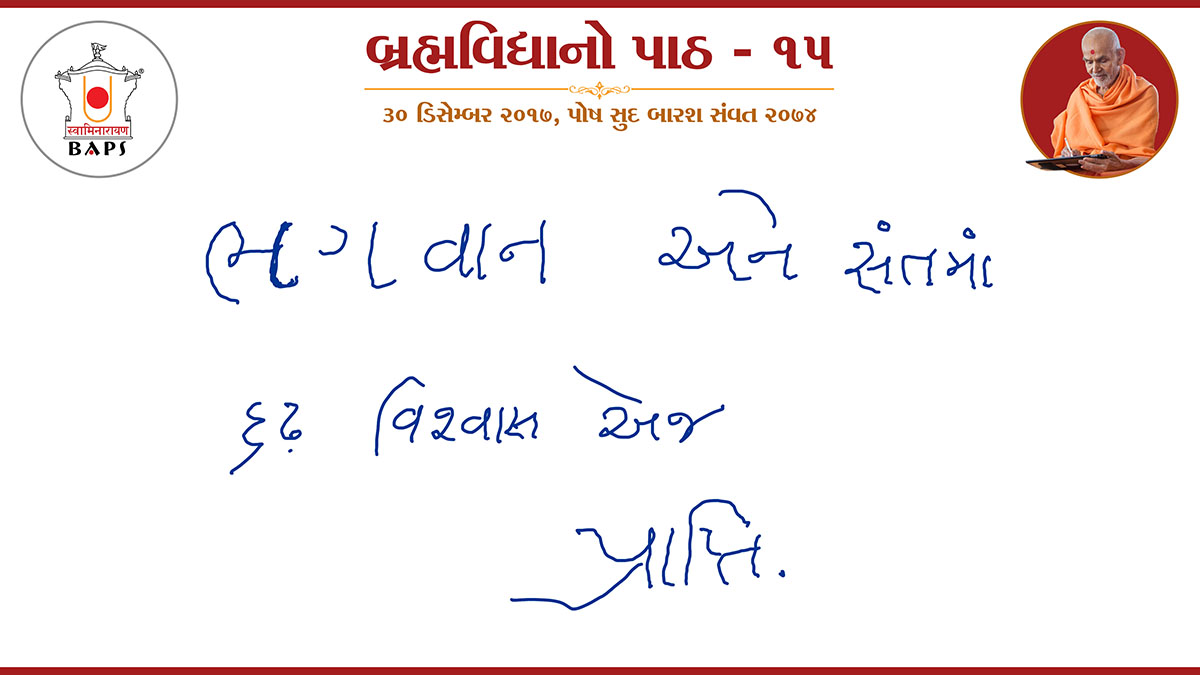 બ્રહ્મવિદ્યાનો પાઠ - ૧૫
૩૦ ડિસેમ્બર ૨૦૧૭, પોષ સુદ બારશ સંવત ૨૦૭૪
स्वामिनारायण
BAPS
ભગવાન અને સંતમાં
દૃઢ વિશ્વાસ એજ
પ્રાપ્તિ.